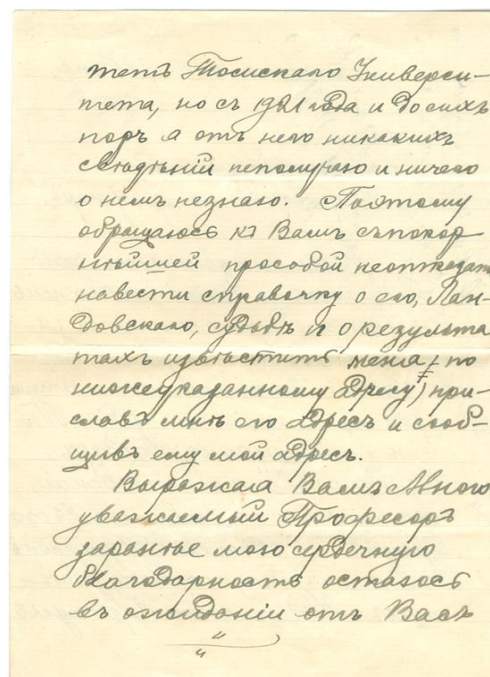 тетъ Томскаго Универси-
тета, но съ 1921 года и до сихъ
поръ я отъ него никакихъ
свѣдѣній неполучаю и ничего
о немъ незнаю. Поэтому
обращаюсь къ Вамъ съ покор
нѣйшей прособой неотказать
навести справочку о его, Лан-
довскаго, судьбѣ и о результа
тахъ извѣстить меня по
нижеуказанному адресу, при-
славъ мнѣ его адресъ и сооб-
щивъ ему мой адресъ.
Выражая Вамъ Много
уважаемый Професоръ
заранѣе мою сердечную
благодарность остаюсь
въ ожиданіи отъ Васъ